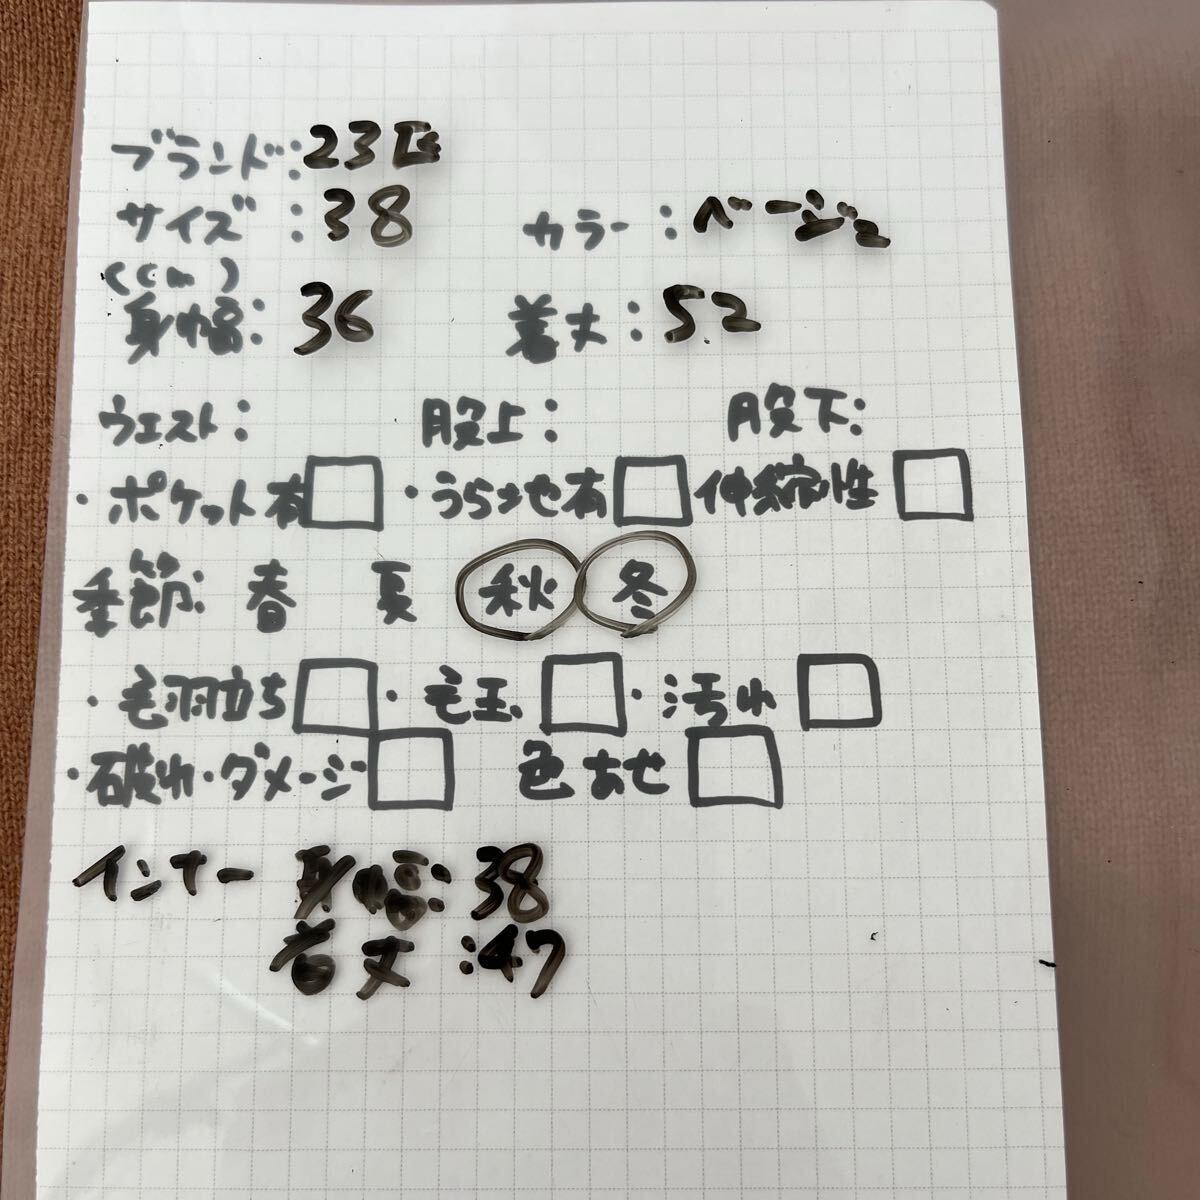 ブランド:23区
サイズ:38 カラー:ベージュ
(cm)
身幅:36 着丈:52
ウエスト: 股上: 股下:
・ポケット有□ ・うら地有□ 伸縮性□
季節: 春 夏 秋 冬
・毛羽立ち□ ・毛玉□ ・汚れ□
・破れ・ダメージ□ 色あせ□
インナー 身幅:38
着丈:47